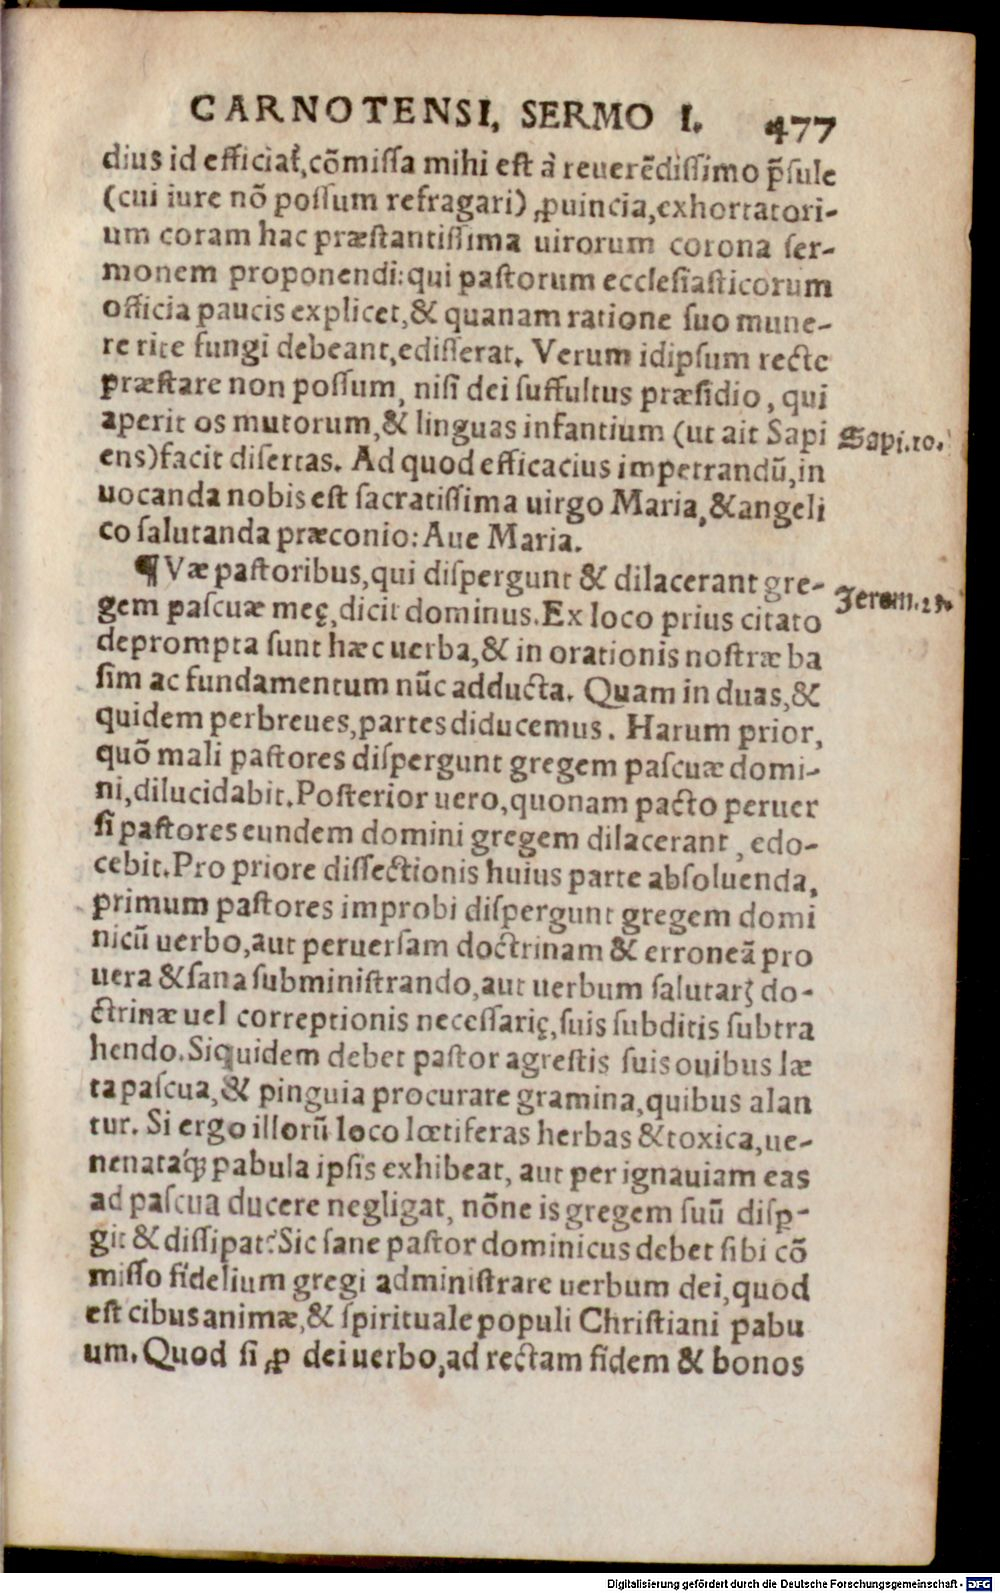 CARNOTENSI, SERMO I. 477
dius id efficiat᷑,cõmissa mihi est à reuerẽdissimo p̃sule
(cui iure nõ possum refragari) ꝓuincia,exhortatori-
um coram hac præstantissima uirorum corona ser-
monem proponendi:qui pastorum ecclesiasticorum
officia paucis explicet,& quanam ratione suo mune-
re rite fungi debeant,edisserat. Verum idipsum recte
præstare non possum, nisi dei suffultus præsidio, qui
aperit os mutorum,& linguas infantium (ut ait Sapi
Sapi.10.
ens)facit disertas. Ad quod efficacius impetrandũ,in
uocanda nobis est sacratissima uirgo Maria,&angeli
co salutanda præconio: Aue Maria.
¶ Væ pastoribus,qui dispergunt & dilacerant gre-
Jerem.23.
gem pascuæ meę,dicit dominus.Ex loco prius citato
deprompta sunt hæc uerba,& in orationis nostræ ba
sim ac fundamentum nũc adducta. Quam in duas,&
quidem perbreues,partes diducemus. Harum prior,
quõ mali pastores dispergunt gregem pascuæ domi-
ni,dilucidabit.Posterior uero,quonam pacto peruer
si pastores eundem domini gregem dilacerant, edo-
cebit.Pro priore dissectionis huius parte absoluenda,
primum pastores improbi dispergunt gregem domi
nicũ uerbo,aut peruersam doctrinam & erroneã pro
uera &sana subministrando,aut uerbum salutarꝭ do-
ctrinæ uel correptionis necessarię,suis subditis subtra
hendo.Siquidem debet pastor agrestis suis ouibus læ
ta pascua,& pinguia procurare gramina,quibus alan
tur. Si ergo illorũ loco lœtiferas herbas &toxica,ue-
nenataq́ꝫ pabula ipsis exhibeat, aut per ignauiam eas
ad pascua ducere negligat, nõne is gregem suũ disp̱-
git & dissipat?Sic sane pastor dominicus debet sibi cõ
misso fidelium gregi administrare uerbum dei,quod
est cibus animæ,& spirituale populi Christiani pabu
um.Quod si ꝓ dei uerbo,ad rectam fidem & bonos
Digitalisierung gefördert durch die Deutsche Forschungsgemeinschaft - DFG